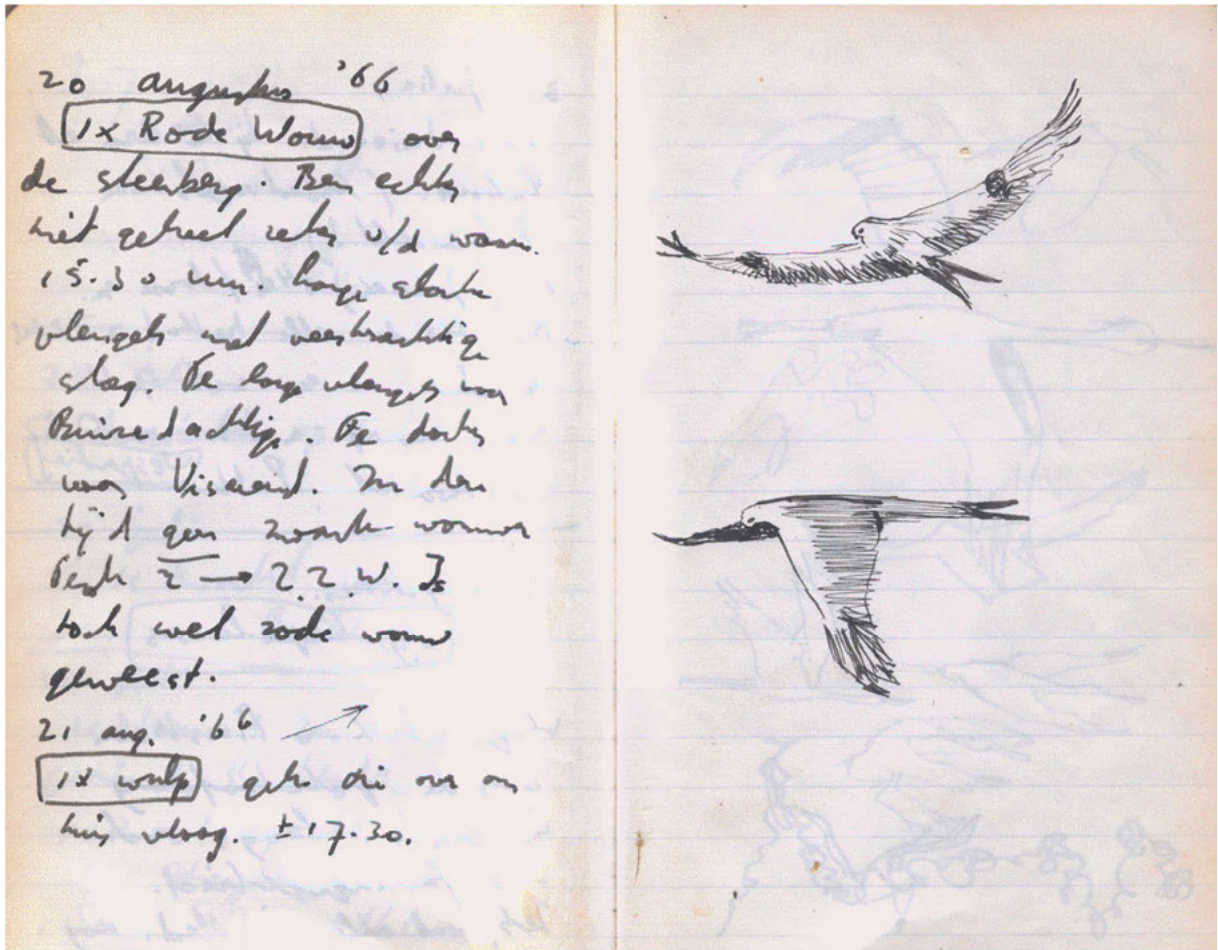 20 augustus '66
1x Rode Wouw over
de steenberg. Ben echter
niet geheel zeker v/d waarn.
15.30 uur. Lange slanke
vleugels met veerkrachtige
slag. Te lange vleugels voor
Buizerdachtige. Te donker
voor Visarend. In den
tijd geen zwarte wouwen
Trek Z → Z.Z.W. Is
toch wel rode wouw
geweest.
21 aug. '66
1x wulp geh. die over ons
huis vloog. ± 17.30.